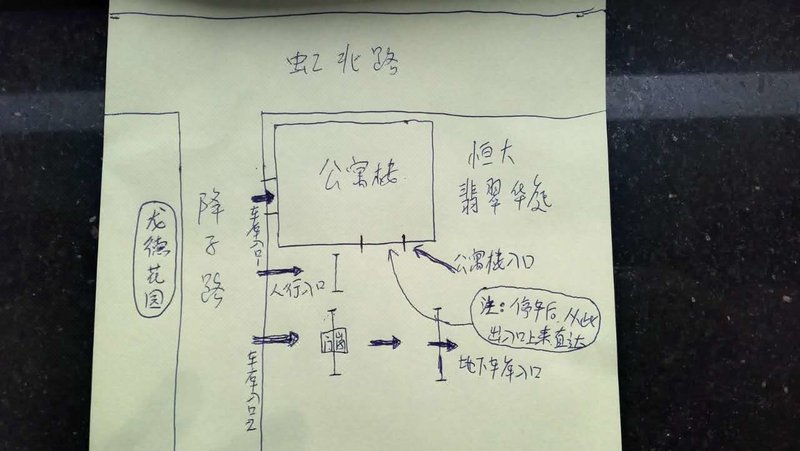 虹北路
公寓楼
恒大
翡翠华庭
龙德花园
降子路
车库入口1
人行入口
公寓楼入口
注：停车后，从此
出入口上来直达
门岗
车库入口2
地下车库入口